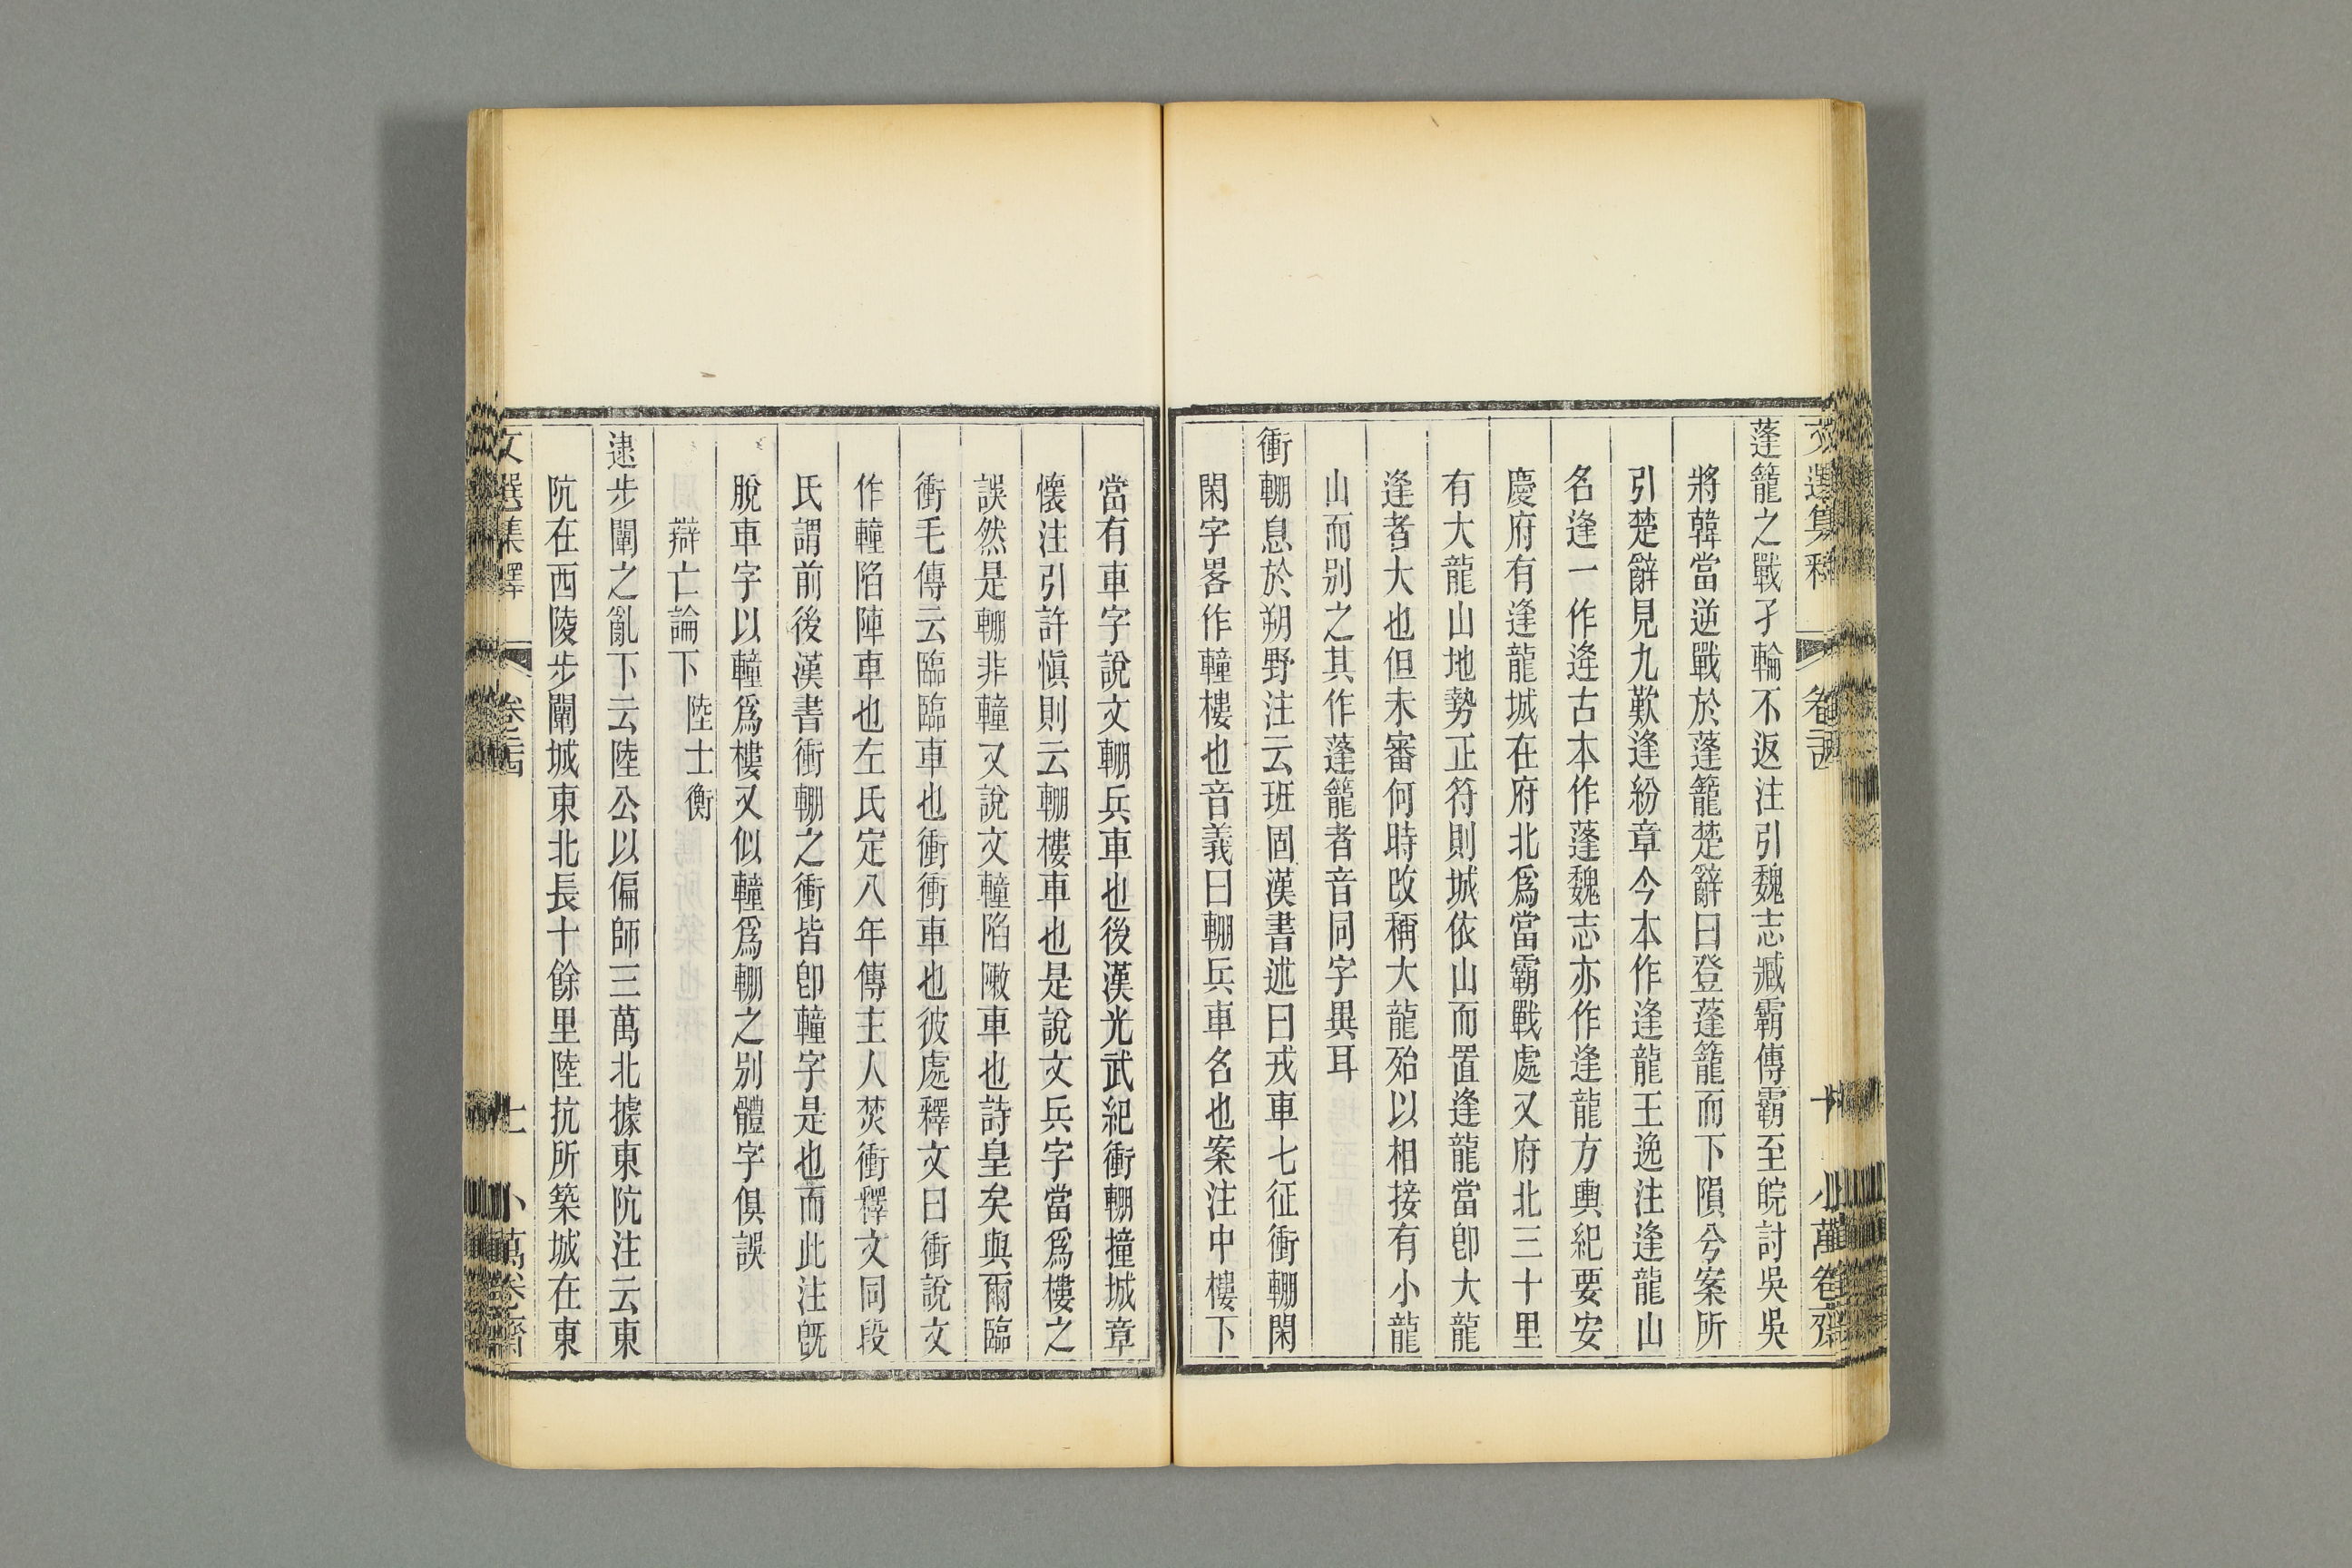 蓬籠之戰孑輪不返注引魏志臧霸傳霸至皖討吳吳
將韓當逆戰於蓬籠楚辭曰登蓬籠而下隕兮案所
引楚辭見九歎逢紛章今本作逢龍王逸注逢龍山
名逢一作逄古本作蓬魏志亦作逢龍方輿紀要安
慶府有逢龍城在府北爲當霸戰處又府北三十里
有大龍山地勢正符則城依山而置逢龍當卽大龍
逢者大也但未審何時改稱大龍殆以相接有小龍
山而别之其作蓬籠者音同字異耳
衝輣息於朔野注云班固漢書述曰戎車七征衝輣閑
閑字畧作䡴樓也音義曰輣兵車名也案注中樓下
當有車字說文輣兵車也後漢光武紀衝輣撞城章
懷注引許愼則云輣樓車也是說文兵字當爲樓之
誤然是輣非䡴又說文䡴陷敶車也詩皇矣與爾臨
衝毛傳云臨臨車也衝衝車也彼處釋文曰衝說文
作䡴陷陣車也左氏定八年傳主人焚衝釋文同段
氏謂前後漢書衝輣之衝皆卽䡴字是也而此注旣
脫車字以䡴爲樓又似䡴爲輣之别體字俱誤
辯亡論下 陸士衡
逮步闡之亂下云陸公以偏師三萬北據東阬注云東
阬在西陵步闡城東北長十餘里陸抗所築城在東
文選集釋 卷二十四 十一 小萬卷齋